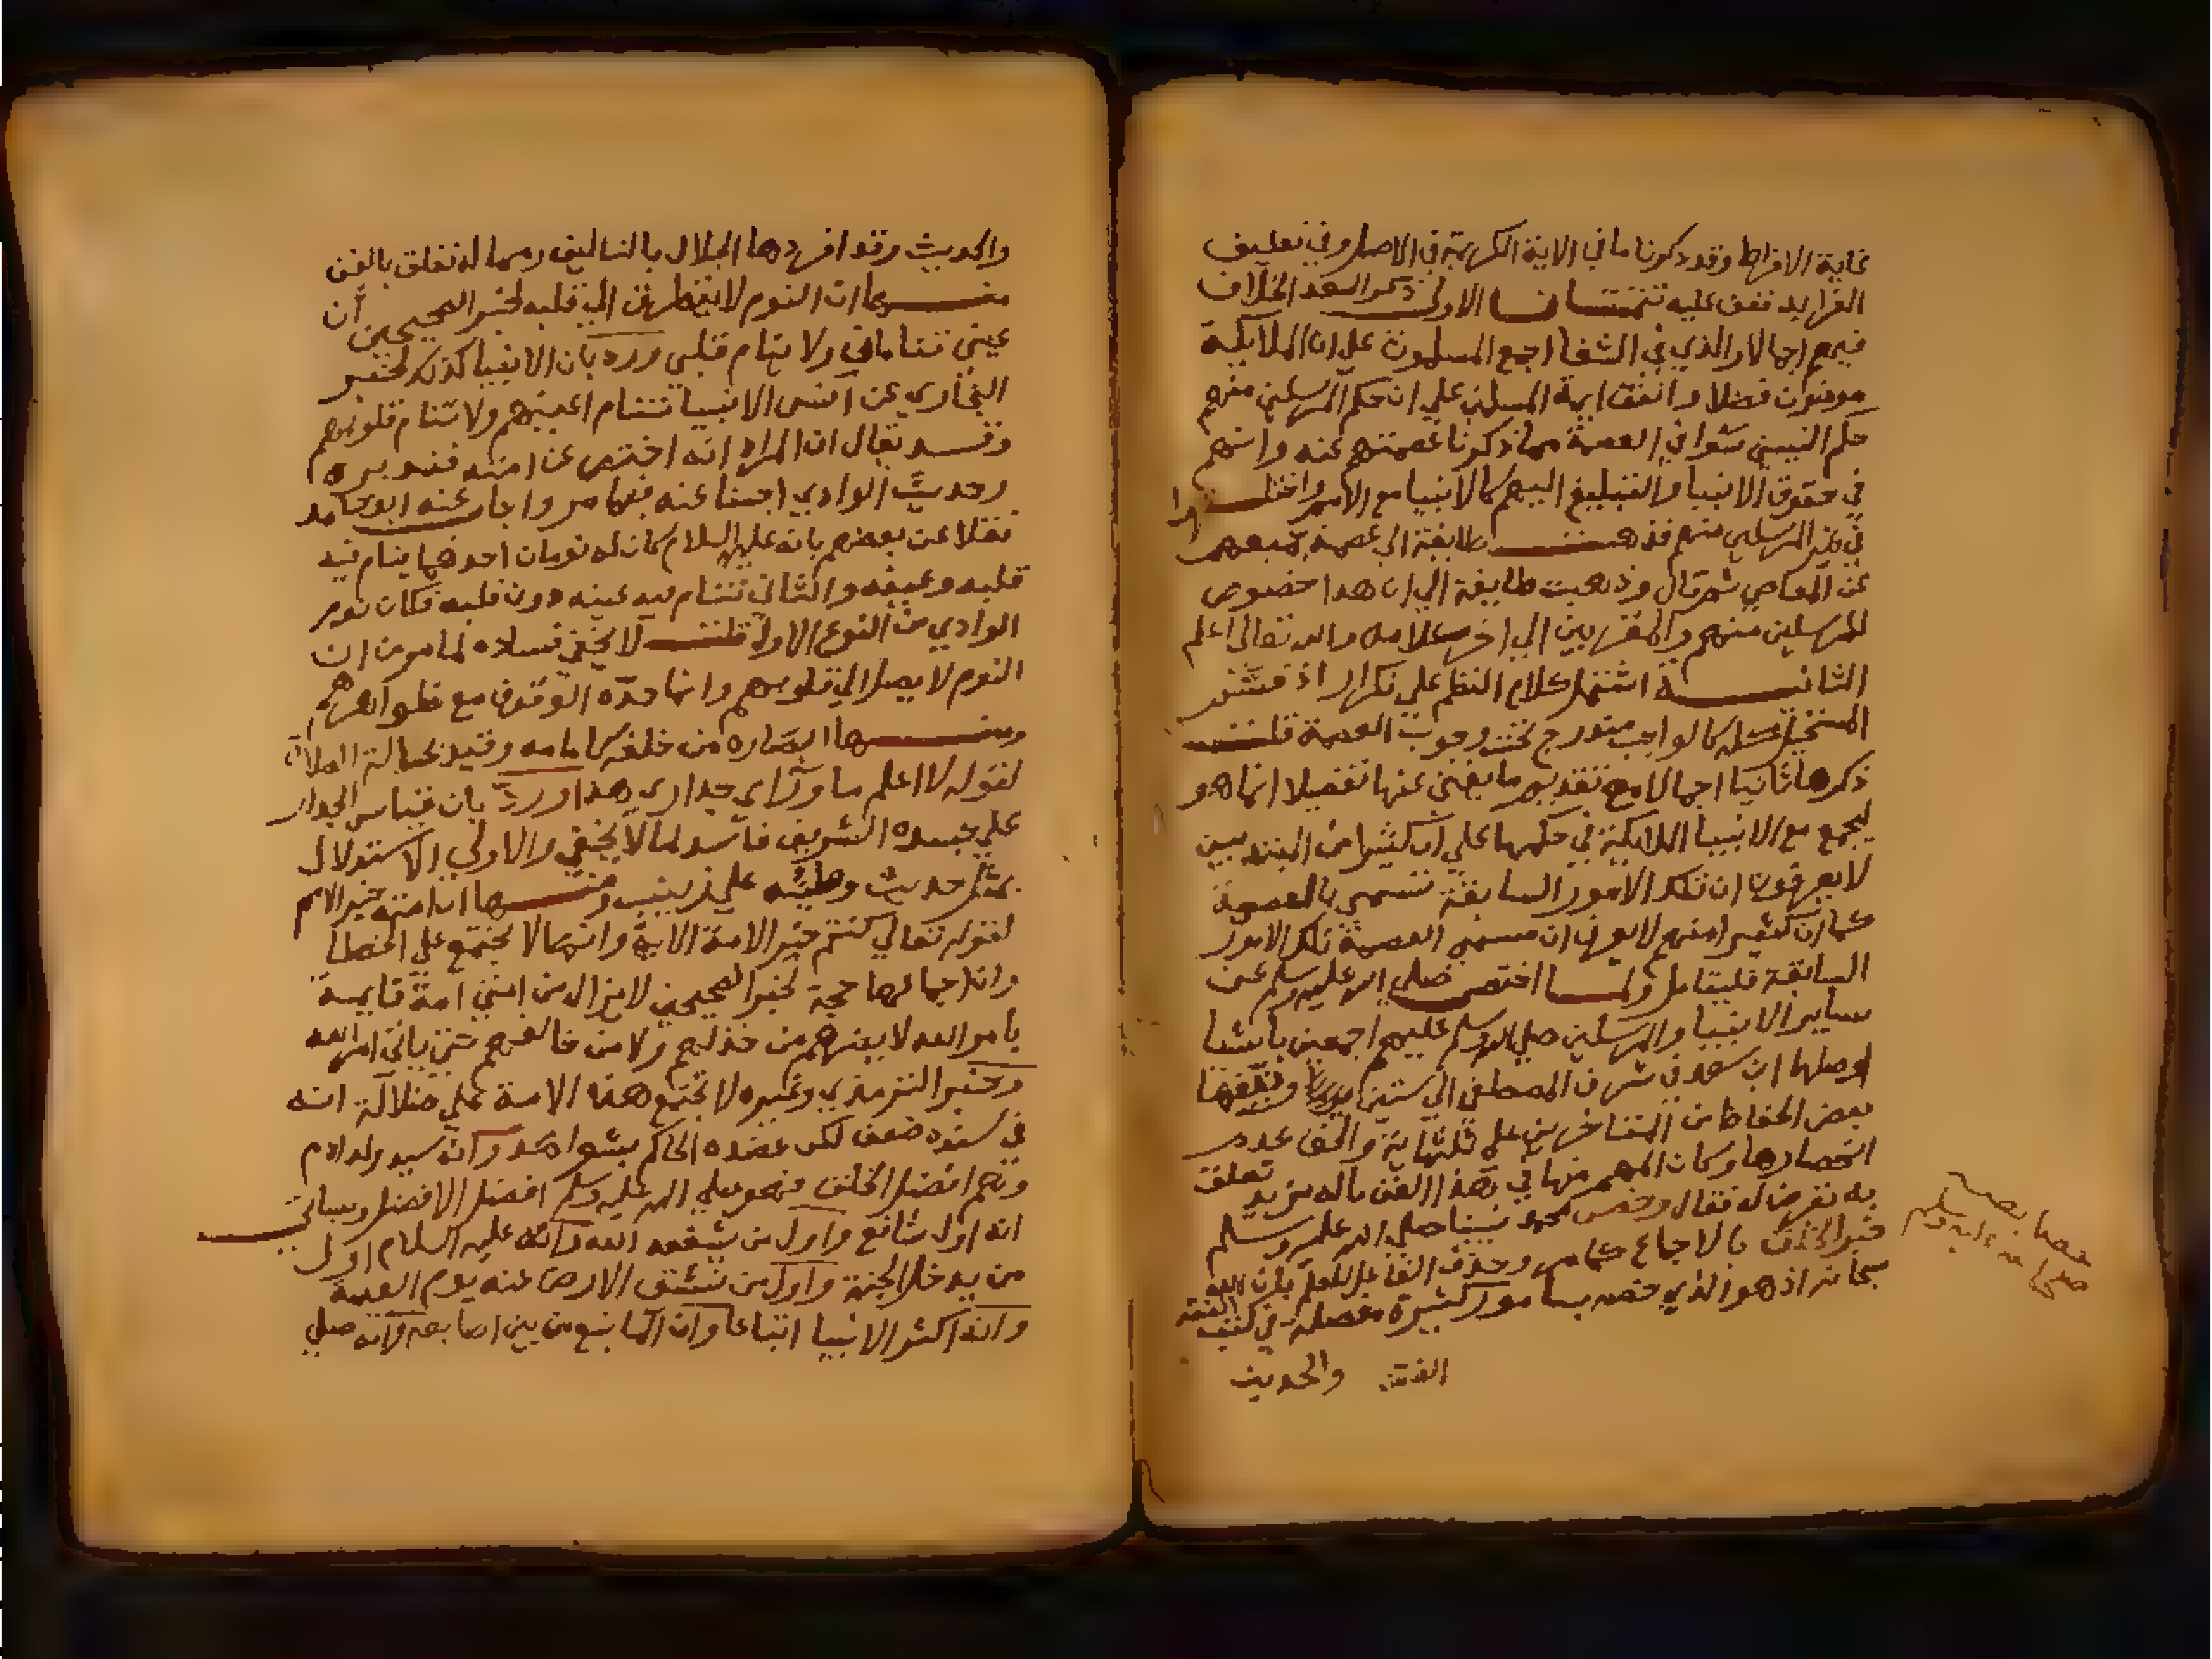 غاية الافراط وقد ذكرنا ما في الاية الكريمة في الاصل وفي تعليق
الفرايد فقف عليه تتمتان الاولى ذكر السعد الخلاف
فيهم اجمالا والذي في الشفا اجمع المسلمون على ان الملايكة
مومنون فضلا واتفق ايمة المسلمين علي ان حكم المرسلين منهم
حكم النبيين سوا في العصمة مما ذكرنا عصمتهم عنه وانهم
في حقوق الانبيا والتبليغ اليهم كالانبيا مع الامم واختلفوا
في غير المرسلين منهم فذهبت طايفة الي عصمة جميعهم
عن المعاصي ثم قال وذهبت طايفة الي ان هذا خصوص
للمرسلين منهم والمقربين الي اخر كلامه والله تعالى اعلم
الثانية اشتمل كلام النظم علي تكرار اذ
المستحيل كالواجب مندرج تحت وجوب العصمة قلت
ذكرها ثانيا اجمالا مع تقديم ما يغني عنها تفصيلا انما هو
ليجمع مع الانبيا الملايكة في حكمها علي ان كثيرا من المبتديين
لا يعرفون ان تلك الامور السابقة تسمي بالعصمة
كما ان كثيرا منهم لا يعرف ان مسمى العصمة تلك الامور
السابقة فليتامل ولما اختص صلي الله عليه وسلم عن
ساير الانبيا والمرسلين صلي الله وسلم عليهم اجمعين باشيا
اوصلها ابن سعد في شرف المصطفي الي ستين
بعض الحفاظ من المتاخرين علي ثلثماية والحق عدم
انحصارها وكان المهم منها في هذا الفن ماله مزيد تعلق
به تعرض له فقال وخص نبينا صلي الله عليه وسلم
خير الخلق بالاجماع كما مر وحذف الفاعل للعلم بان الله
سبحانه اذ هو الذي خصه بامور كثيرة مفصلة في كتب الفقه
الفقه والحديث
صلي الله عليه وسلم
والحديث وقد افردها الجلال بالتاليف ومما له تعلق بالفن
منها ان النوم لا يتطرق الي قلبه لخبر الصحيحين ان
عيني تنامان ولا ينام قلبي ورد بان الانبيا كذلك لخبر
البخاري عن انس الانبيا تنام اعينهم ولا تنام قلوبهم
وقد يقال ان المراد انه اختص عن امته فتدبره
وحديث الوادي اجبنا عنه فيما مر واجاب عنه ابو حامد
نقلا عن بعضهم بانه عليه السلام كان له نومان احدهما ينام فيه
قلبه وعينه والثاني تنام فيه عينه دون قلبه فكان نوم
الوادي من النوع الاول قلت لا يخفي فساده لما مر من ان
النوم لا يصل الي قلوبهم وانما حده الوقوف مع ظواهرهم
ومنها ابصاره من خلفه كامامه وقيد بحالة الصلاة
لقوله لا اعلم ما ورآي جداري هذا ورد بان قياس الجدار
علي جسده الشريف فاسد لما لا يخفي والاولي الاستدلال
بمثل حديث وطيه علي زينب ومنها ان امته خير الامم
لقوله تعالي كنتم خير الامة الاية وانها لا تجتمع علي الخطا
وان اجماعها حجة لخبر الصحيحين لا يزال من امتي امة قايمة
بامر الله لا يضرهم من خذلهم ولا من خالفهم حتي ياتي امر الله
وخبر الترمذي وغيره لا تجتمع هذه الامة علي ضلالة انه
في سنده ضعف لكن عضده الحاكم بشواهد وانه سيد ولد ادم
وانهم افضل الخلق فهو صلي الله عليه وسلم افضل الافضل وسياتي
انه اول شافع واول من يشفعه الله وانه عليه السلام اول
من يدخل الجنة واول من تنشق الارض عنه يوم القيمة
وانه اكثر الانبيا اتباعا وان الما نبع من بين اصابعه وانه صلي